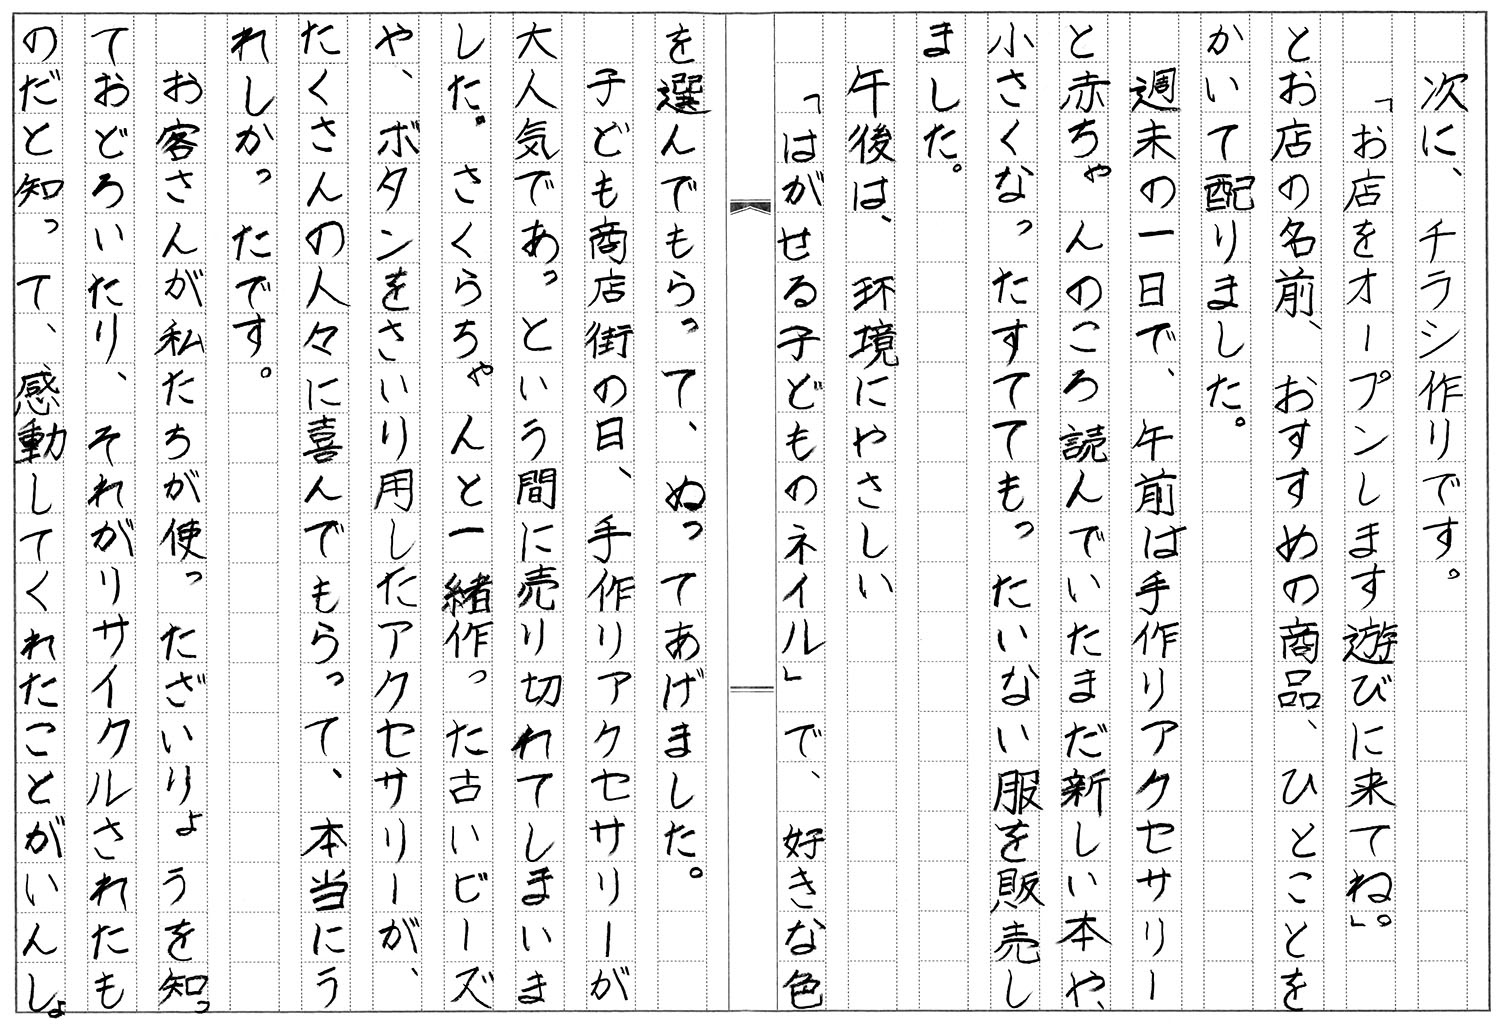 次に、チラシ作りです。
「お店をオープンします遊びに来てね」。
とお店の名前、おすすめの商品、ひとことを
かいて配りました。
週末の一日で、午前は手作りアクセサリー
と赤ちゃんのころ読んでいたまだ新しい本や、
小さくなったすててもったいない服を販売し
ました。
午後は、環境にやさしい
「はがせる子どものネイル」で、好きな色
を選んでもらって、ぬってあげました。
子ども商店街の日、手作りアクセサリーが
大人気であっという間に売り切れてしまいま
した。さくらちゃんと一緒作った古いビーズ
や、ボタンをさいり用したアクセサリーが、
たくさんの人々に喜んでもらって、本当にう
れしかったです。
お客さんが私たちが使ったざいりょうを知っ
ておどろいたり、それがリサイクルされたも
のだと知って、感動してくれたことがいんしょ